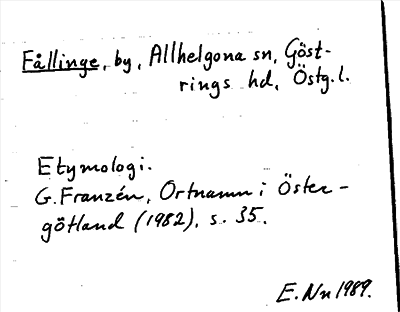 Fållinge, by, Allhelgona sn, Göst-
rings hd, Östg.l.
Etymologi.
G. Franzén, Ortnamn i Öster-
götland (1982), s. 35.
E. Nn 1989.